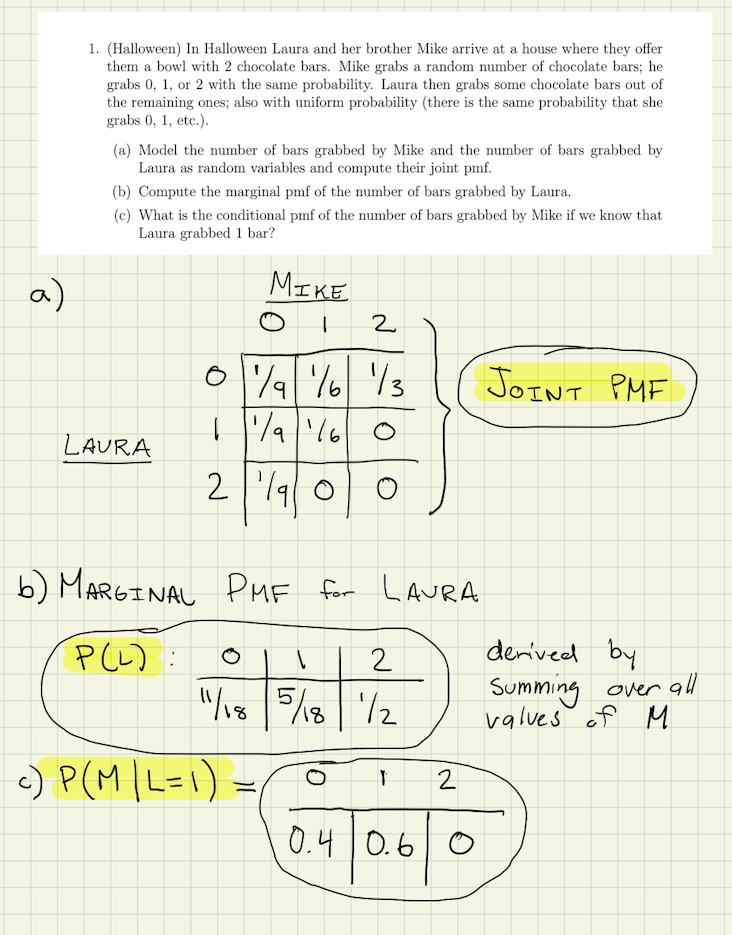 1. (Halloween) In Halloween Laura and her brother Mike arrive at a house where they offer
them a bowl with 2 chocolate bars. Mike grabs a random number of chocolate bars; he
grabs 0, 1, or 2 with the same probability. Laura then grabs some chocolate bars out of
the remaining ones; also with uniform probability (there is the same probability that she
grabs 0, 1, etc.).
(a) Model the number of bars grabbed by Mike and the number of bars grabbed by
Laura as random variables and compute their joint pmf.
(b) Compute the marginal pmf of the number of bars grabbed by Laura.
(c) What is the conditional pmf of the number of bars grabbed by Mike if we know that
Laura grabbed 1 bar?
a)
MIKE
0 1 2
0 1/9 1/6 1/3
JOINT PMF
1 1/9 1/6 0
LAURA
2 1/9 0 0
b) MARGINAL PMF for LAURA
P(L) : 0 1 2
11/18 5/18 1/2
derived by
summing over all
values of M
c) P(M|L=1) = 0 1 2
0.4 0.6 0